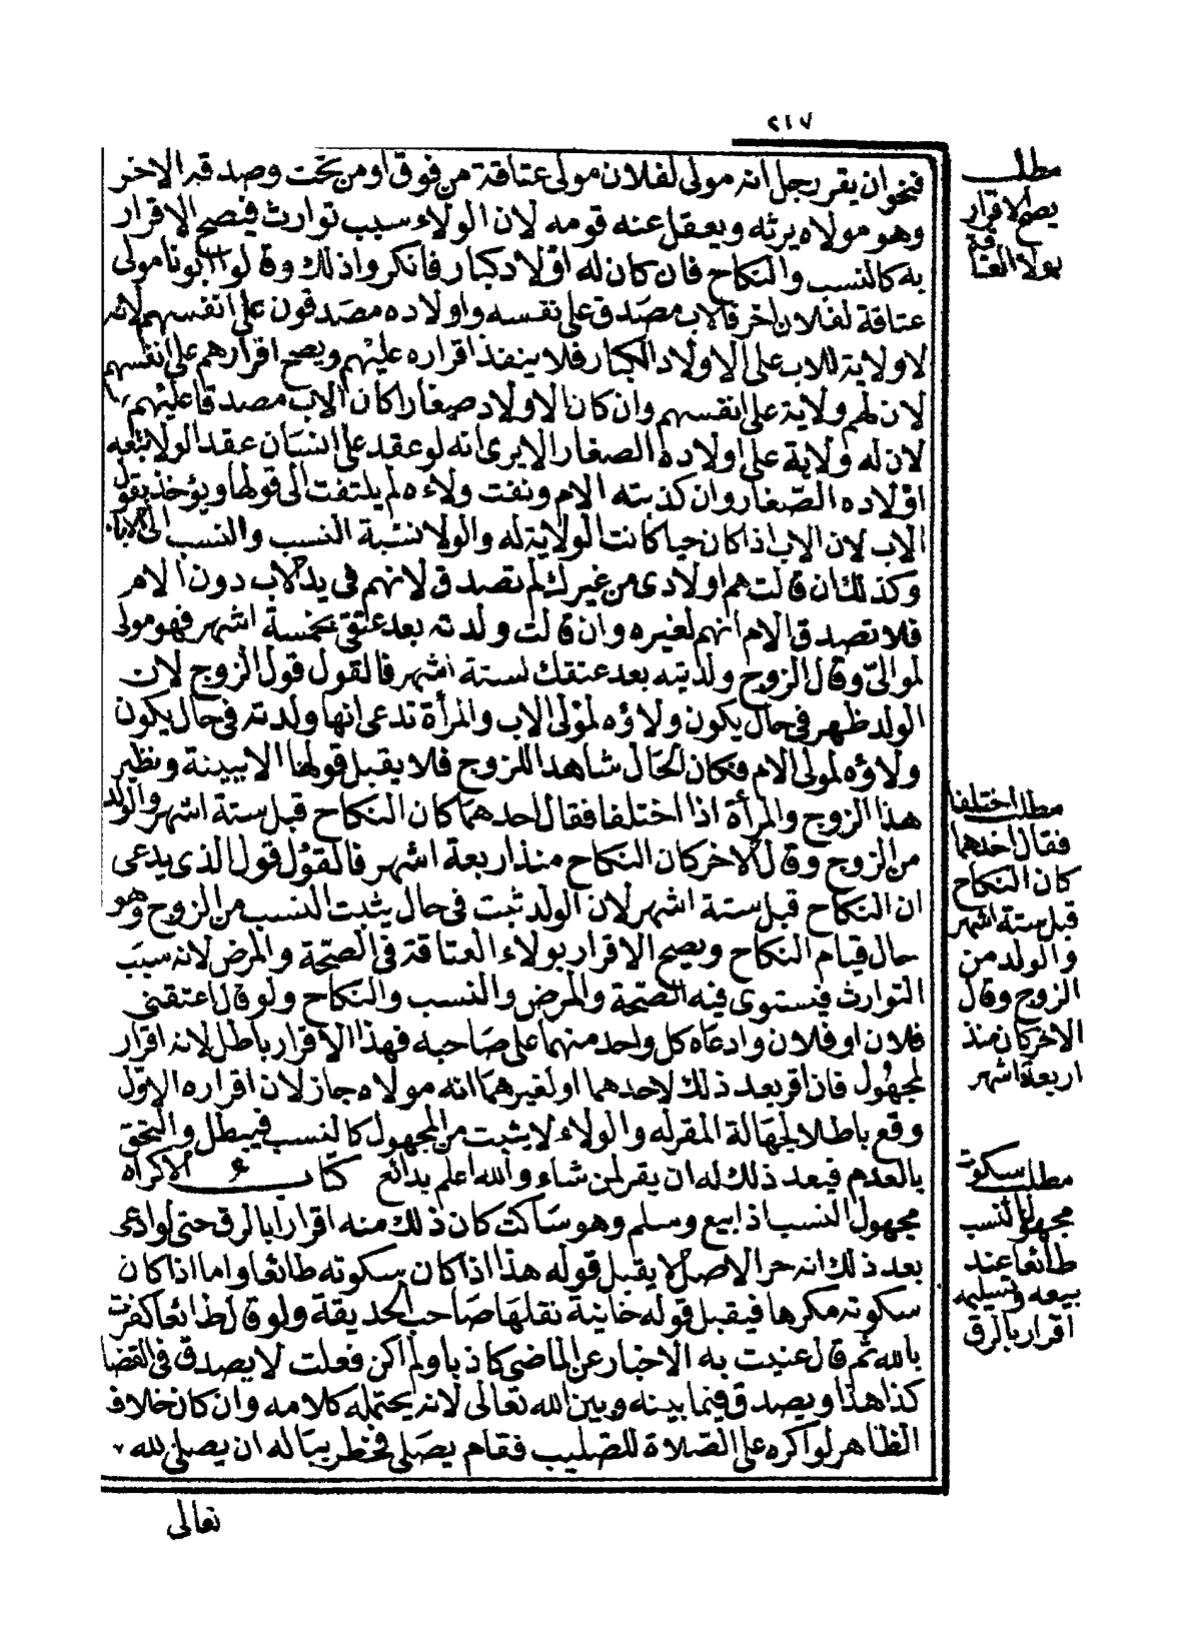 ٢١٧
فنحو ان يقر رجل انه مولى لفلان مولى عتاقة من فوق او من تحت وصدقه الاخر
وهو مولاه يرثه ويعقل عنه قومه لان الولاء سبب توارث فيصح الاقرار
به كالنسب والنكاح فان كان له اولاد كبار فانكروا ذلك وقالوا ابونا مولى
عتاقة لفلان اخر فالاب مصدق على نفسه واولاده مصدقون على انفسهم لانه
لا ولاية للاب على الاولاد الكبار فلا ينفذ اقراره عليهم ويصح اقرارهم على انفسهم
لان لهم ولاية على انفسهم وان كان الاولاد صغارا كان الاب مصدقا عليهم
لان له ولاية على اولاده الصغار الا يرى انه لو عقد على انسان عقد الولا تبعه
اولاده الصغار وان كذبته الام ونفت ولاءه لم يلتفت الى قولها ويؤخذ بقول
الاب لان الاب اذا كان حيا كانت الولاية له والولا نشبة النسب والنسب الى الاباء
وكذلك ان قالت هم اولادى من غيرك لم تصدق لانهم فى يد الاب دون الام
فلا تصدق الام انهم لغيره وان قالت ولدته بعد عتقى بخمسة اشهر فهو مولى
لموالىّ وقال الزوج ولدتيه بعد عتقك لستة اشهر فالقول قول الزوج لان
الولد ظهر فى حال يكون ولاؤه لمولى الاب والمرأة تدعى انها ولدته فى حال يكون
ولاؤه لمولى الام فكان الحال شاهدا للزوج فلا يقبل قولها الا ببينة ونظير
هذا الزوج والمرأة اذا اختلفا فقال احدهما كان النكاح قبل ستة اشهر والولد
من الزوج وقال الاخر كان النكاح منذ اربعة اشهر فالقول قول الذى يدعى
ان النكاح قبل ستة اشهر لان الولد ثبت فى حال يثبت النسب من الزوج وهو
حال قيام النكاح ويصح الاقرار بولاء العتاقة فى الصحة والمرض لانه سبب
التوارث فيستوى فيه الصحة والمرض والنسب والنكاح ولو قال اعتقنى
فلان او فلان وادعاه كل واحد منهما على صاحبه فهذا الاقرار باطل لانه اقرار
لمجهول فان اقر بعد ذلك لاحدهما او لغيرهما انه مولاه جاز لان اقراره الاول
وقع باطلا لجهالة المقر له والولاء لا يثبت من المجهول كالنسب فيبطل والتحق
بالعدم فبعد ذلك له ان يقر لمن شاء والله اعلم بدائع كتاب الاكراه
مجهول النسب اذا بيع وسلم وهو ساكت كان ذلك منه اقرارا بالرق حتى لو ادعى
بعد ذلك انه حر الاصل لا يقبل قوله هذا اذا كان سكوته طائعا واما اذا كان
سكوته مكرها فيقبل قوله خانية نقلها صاحب الحديقة ولو قال طائعا كفرت
بالله ثم قال عنيت به الاخبار عن الماضى كاذبا ولم اكن فعلت لا يصدق فى القضا
كذا هذا ويصدق فيما بينه وبين الله تعالى لانه يحتمله كلامه وان كان خلاف
الظاهر لو اكره على الصلاة للصليب فقام يصلى فخطر بباله ان يصلى لله
تعالى
مطلب
يصح الاقرار
بولاء العتاقة
مطلب اختلفا
فقال احدهما
كان النكاح
قبل ستة اشهر
والولد من
الزوج وقال
الاخر كان منذ
اربعة اشهر
مطلب سكوت
مجهول النسب
طائعا عند
بيعه وتسليمه
اقرار بالرق